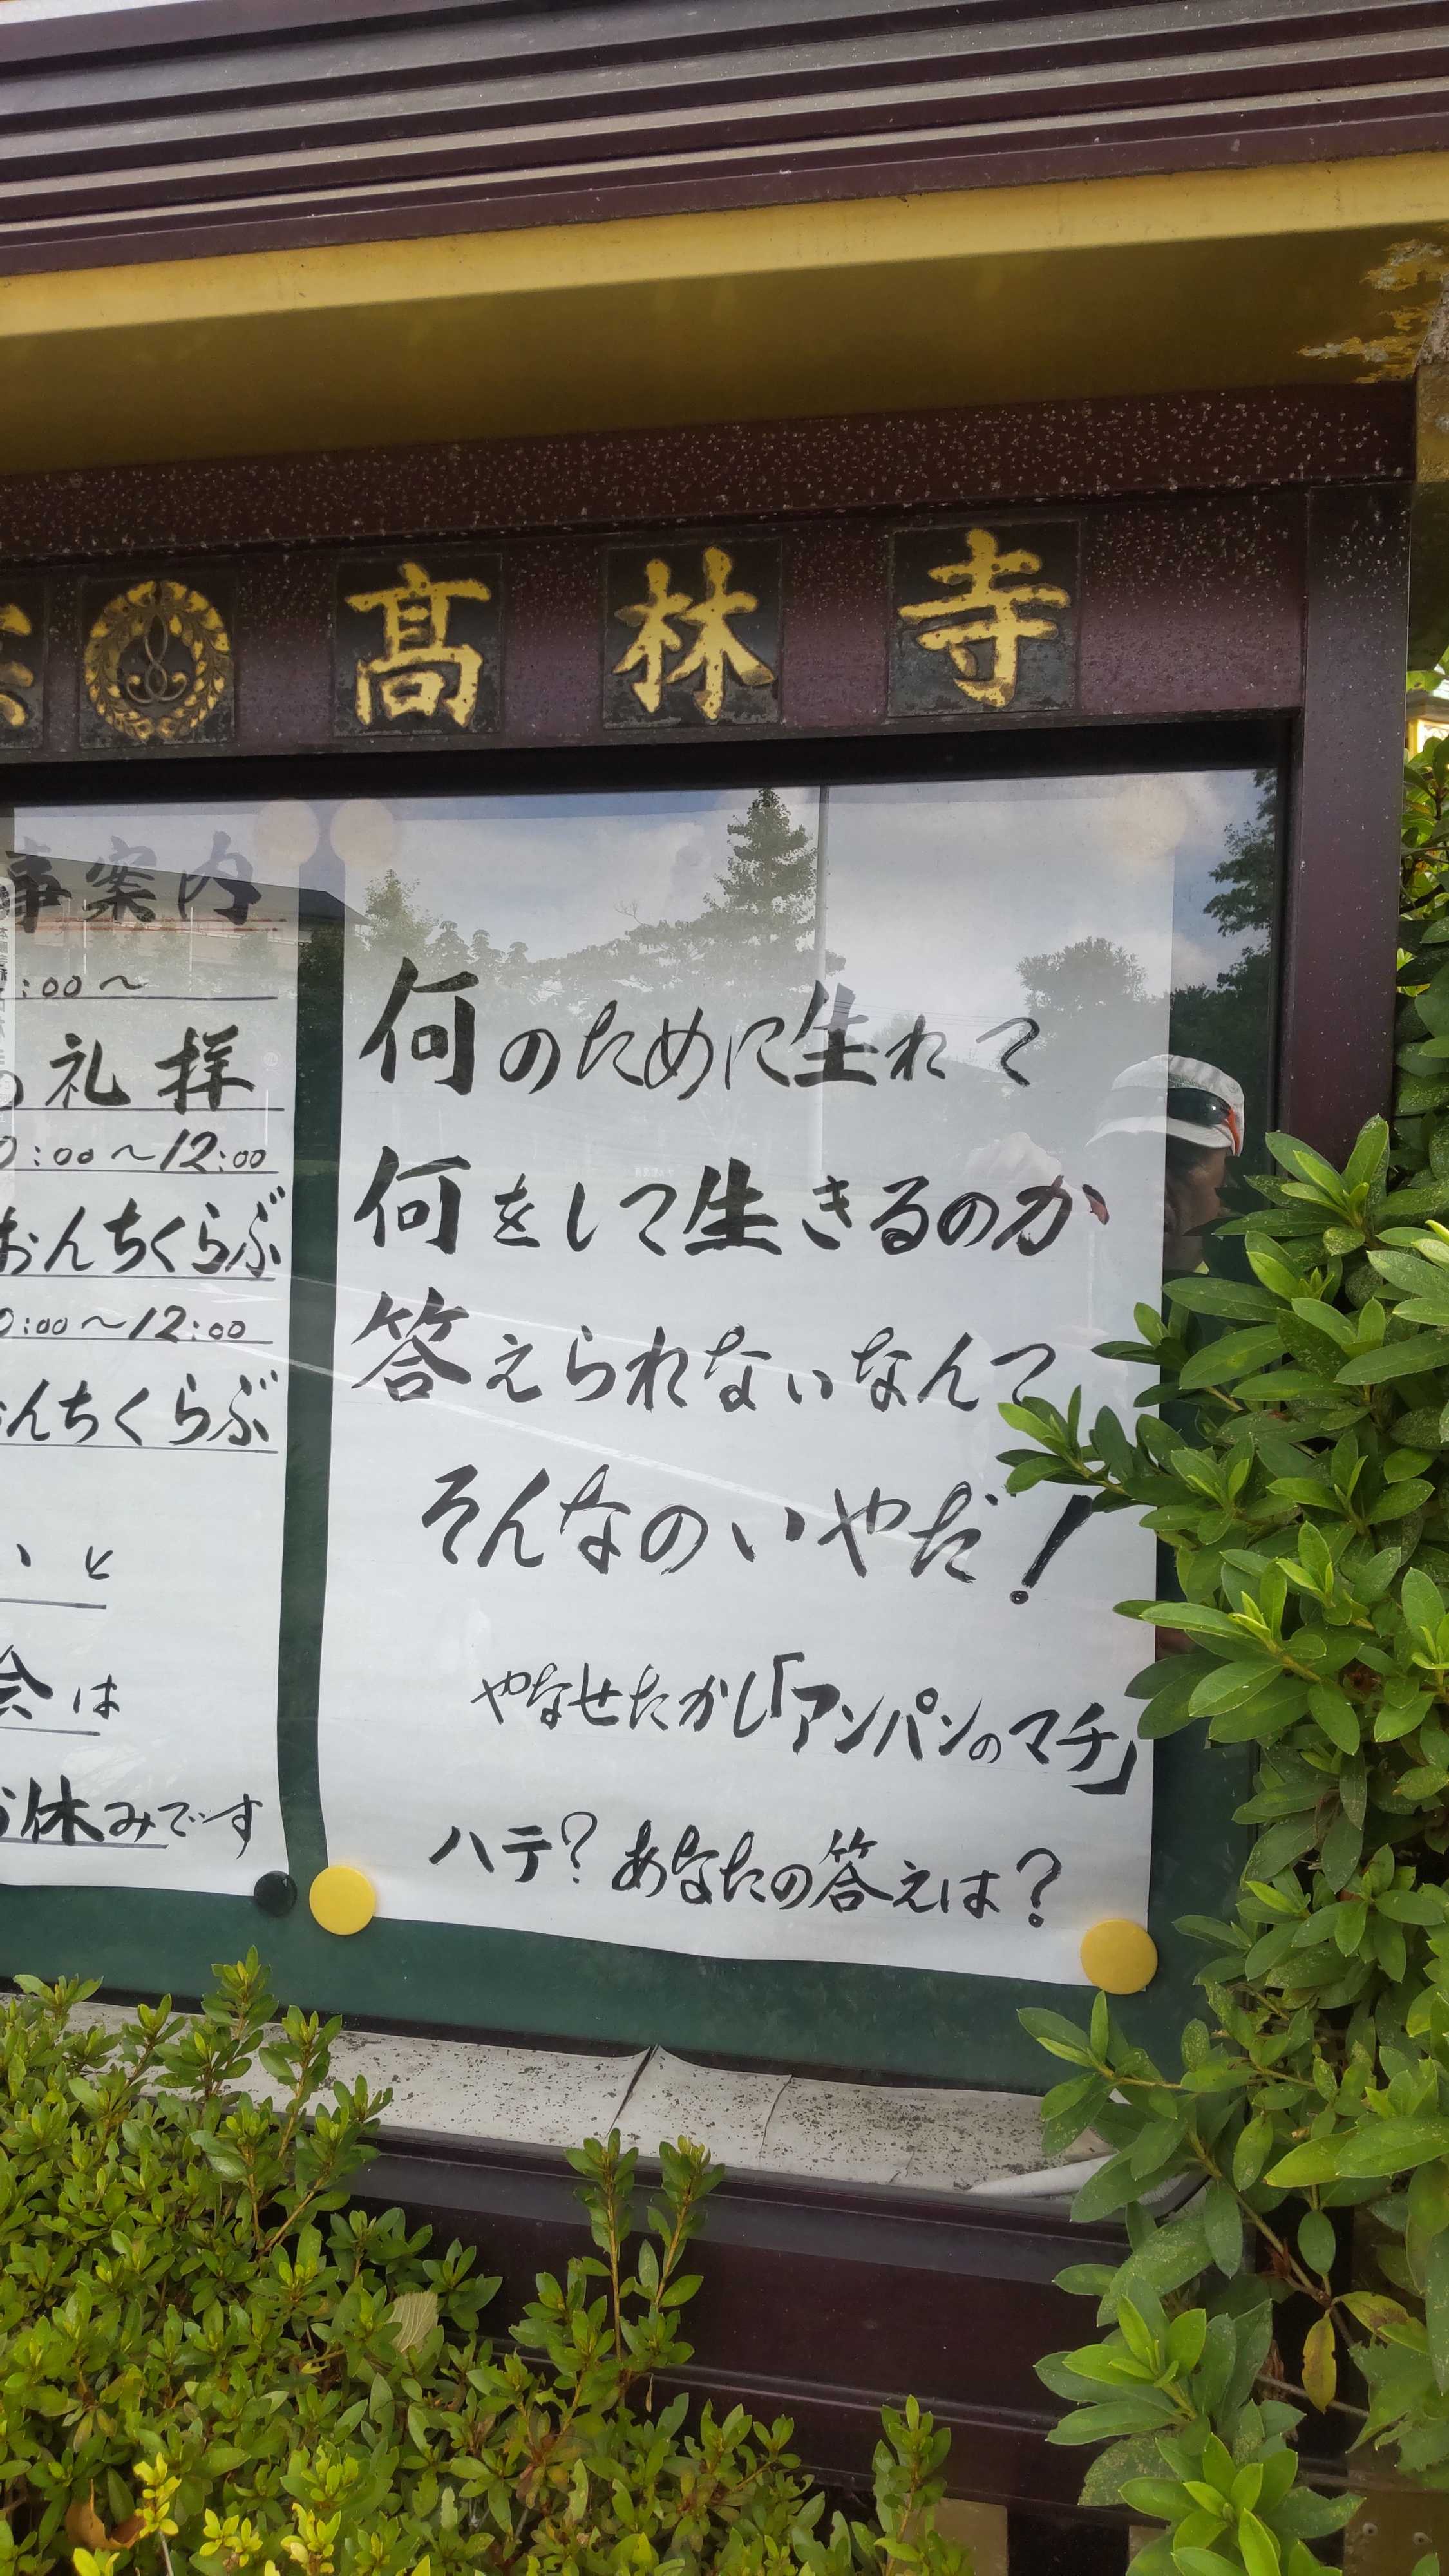 髙林寺
事案内
:00〜
礼拝
0:00〜12:00
おんちくらぶ
0:00〜12:00
んちくらぶ
いと
会は
お休みです
何のために生れて
何をして生きるのか
答えられないなんて
そんなのいやだ!
やなせたかし「アンパンのマチ」
ハテ?あなたの答えは?